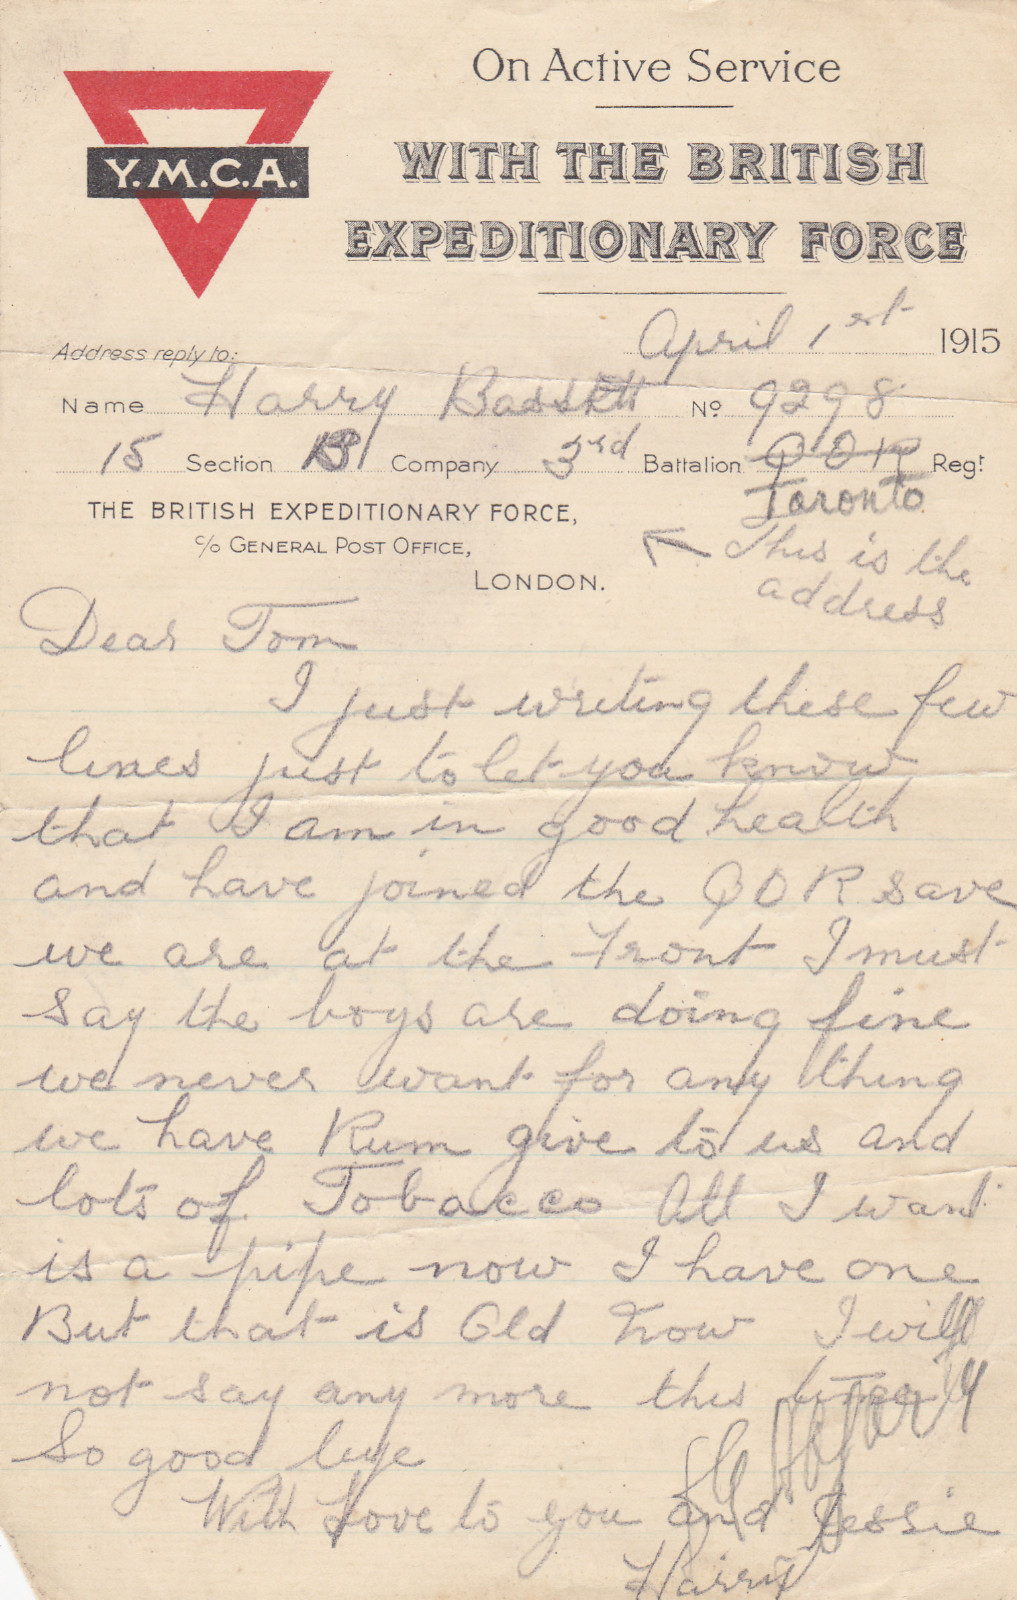 On Active Service
WITH THE BRITISH
EXPEDITIONARY FORCE
Y.M.C.A.
April 1st 1915
Address reply to:
Name Harry Bassett No 9298
15 Section B Company 3rd Battalion QOR Regt
Toronto
THE BRITISH EXPEDITIONARY FORCE,
c/o GENERAL POST OFFICE,
LONDON.
This is the
address
Dear Tom
I just writing these few
lines just to let you know
that I am in good health
and have joined the QOR save
we are at the Front I must
say the boys are doing fine
we never want for any thing
we have Rum give to us and
lots of Tobacco All I want
is a pipe now I have one
But that is Old now I will
not say any more this time
So good bye
With Love to you and Jessie
Harry